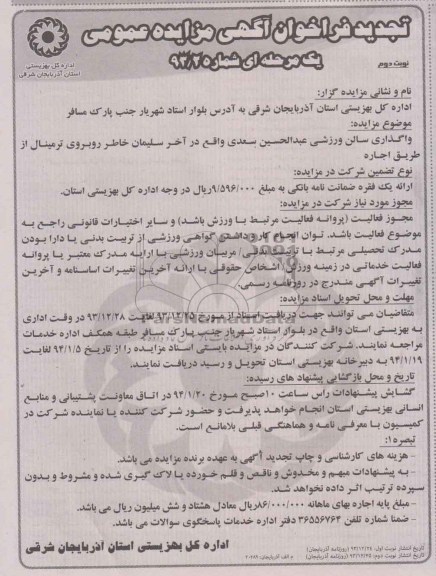 تجدید فراخوان آگهی مزایده عمومی
یک مرحله ای شماره ۹۳/۲
نوبت دوم
اداره کل بهزیستی
استان آذربایجان شرقی
نام و نشانی مزایده گزار:
اداره کل بهزیستی استان آذربایجان شرقی به آدرس بلوار استاد شهریار جنب پارک مسافر
موضوع مزایده:
واگذاری سالن ورزشی عبدالحسین سعدی واقع در آخر سلیمان خاطر روبروی ترمینال از
طریق اجاره
نوع تضمین شرکت در مزایده:
ارائه یک فقره ضمانت نامه بانکی به مبلغ ۹/۵۹۶/۰۰۰ریال در وجه اداره کل بهزیستی استان.
مجوز مورد نیاز شرکت در مزایده:
مجوز فعالیت (پروانه فعالیت مرتبط با ورزش باشد) و سایر اختیارات قانونی راجع به
موضوع فعالیت باشد. توان انجام کار و داشتن گواهی ورزشی از تربیت بدنی یا دارا بودن
مدرک تحصیلی مرتبط با تربیت بدنی/ مربیان ورزشی با ارایه مدرک معتبر یا پروانه
فعالیت خدماتی در زمینه ورزش/ اشخاص حقوقی با ارائه آخرین تغییرات اساسنامه و آخرین
تغییرات آگهی مندرج در روزنامه رسمی.
مهلت و محل تحویل اسناد مزایده:
متقاضیان می توانند جهت دریافت اسناد از مورخ ۹۳/۱۲/۲۵ لغایت ۹۳/۱۲/۲۸ در وقت اداری
به بهزیستی استان واقع در بلوار استاد شهریار جنب پارک مسافر طبقه همکف اداره خدمات
مراجعه نمایند. شرکت کنندگان در مزایده بایستی اسناد مزایده را از تاریخ ۹۴/۱/۵ لغایت
۹۴/۱/۱۹ به دبیرخانه بهزیستی استان تحویل و رسید دریافت نمایند.
تاریخ و محل بازگشایی پیشنهاد های رسیده:
گشایش پیشنهادات راس ساعت ۱۰صبح مورخ ۹۴/۱/۲۰ در اتاق معاونت پشتیبانی و منابع
انسانی بهزیستی استان انجام خواهد پذیرفت و حضور شرکت کننده یا نماینده شرکت در
کمیسیون با معرفی نامه و هماهنگی قبلی بلامانع است.
تبصره۱:
- هزینه های کارشناسی و چاپ تجدید آگهی به عهده برنده مزایده می باشد.
- به پیشنهادات مبهم و مخدوش و ناقص و قلم خورده یا لاک گیری شده و مشروط و بدون
سپرده ترتیب اثر داده نخواهد شد.
- مبلغ پایه اجاره بهای ماهانه ۸۶/۰۰۰/۰۰۰ریال معادل هشتاد و شش میلیون ریال می باشد.
- ضمنا شماره تلفن ۳۶۵۵۶۷۶۴ دفتر اداره خدمات پاسخگوی سوالات می باشد.
اداره کل بهزیستی استان آذربایجان شرقی
تاریخ انتشار نوبت اول: ۹۳/۱۲/۲۴ (روزنامه آذربایجان)
تاریخ انتشار نوبت دوم: ۹۳/۱۲/۲۵ (روزنامه آذربایجان)